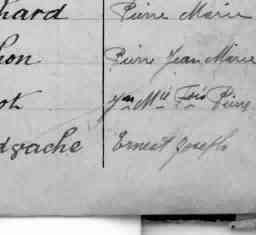 hard Pierre Marie
hon Pierre Jean Marie
ot Yves Mie Fois Pierre
dvache Ernest Joseph